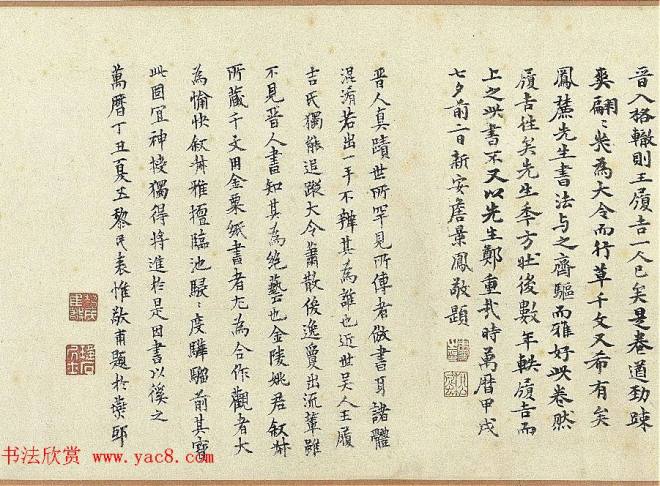 晉人格轍則王履吉一人已矣是卷遒勁疎
爽翩〻*為大令而行草千文又希有矣
鳳麓先生書法与之齊驅而雅好此卷然
履吉往矣先生季方壯後數年軼履吉而
上之此書不又以先生鄭重哉時萬曆甲戌
七夕前二日新安詹景鳳敬題
晉人真蹟世所罕見所傳者倣書耳諸體
混淆若出一手不辨其為誰也近世吳人王履
吉氏獨能追蹤大令蕭散俊逸夐出流輩雖
不見晉人書知其為絕藝也金陵姚君敘卿
所藏千文用金粟紙書者尤為合作觀者大
為愉快敘卿雅擅臨池駸〻度驊騮前其寶
此固宜神授獨得將進於是因書以徯之
萬曆丁丑夏五黎民表惟敬甫題於藥邸
书法欣赏 www.yac8.com